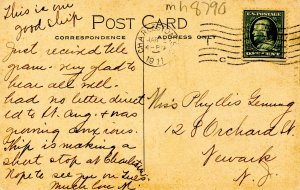 This is our
good ship
mh8790
POST CARD
CORRESPONDENCE
ADDRESS
1911
U.S. POSTAGE
Just received tele
gram. Very glad to
hear all well.
had no letter direct
ed to St. Aug. & was
growing anxious.
Ship is making a
short stop at Charleston
Hope to see you on Tues.
Much love M.
Miss Phyllis Genung
128 Orchard St.
Newark
N. J.